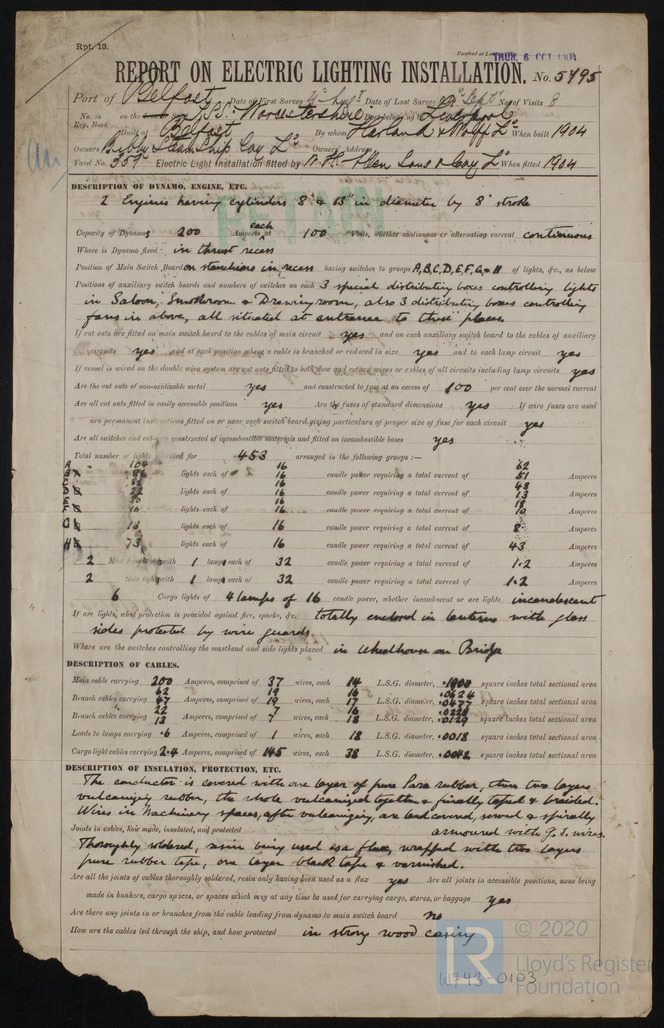 Rpt. 13.
THUR. 6 OCT 1904
REPORT ON ELECTRIC LIGHTING INSTALLATION. No. 5495
Port of Belfast Date of First Survey 4th Augt Date of Last Survey Septr No. of Visits 8
No. in Reg. Book on the S.S. "Worcestershire" Port belonging to Liverpool
Built at Belfast By whom Harland & Wolff Ld When built 1904
Owners Bibby Steam Ship Coy Ld Owners' Address
Yard No. 359 Electric Light Installation fitted by W. H. Allen Sons & Coy Ld When fitted 1904
DESCRIPTION OF DYNAMO, ENGINE, ETC.
2 Engines having cylinders 8" & 13" in diameter by 8" stroke
RETAIN
Capacity of Dynamos 200 Amperes each at 100 Volts, whether continuous or alternating current continuous
Where is Dynamo fixed in thrust recess
Position of Main Switch Board on stanchions in recess having switches to groups A, B, C, D, E, F, G, & H of lights, &c., as below
Positions of auxiliary switch boards and numbers of switches on each 3 special distributing boxes controlling lights
in Saloon, Smokeroom & Drawing room, also 3 distributing boxes controlling
fans in above, all situated at entrance to those places
If cut outs are fitted on main switch board to the cables of main circuit yes and on each auxiliary switch board to the cables of auxiliary
circuits yes and at each position where a cable is branched or reduced in size yes and to each lamp circuit yes
If vessel is wired on the double wire system are cut outs fitted to both flow and return wires or cables of all circuits including lamp circuits yes
Are the cut outs of non-oxidizable metal yes and constructed to fuse at an excess of 100 per cent over the normal current
Are all cut outs fitted in easily accessible positions yes Are the fuses of standard dimensions yes If wire fuses are used
are permanent instructions fitted on or near each switch board giving particulars of proper size of fuse for each circuit yes
Are all switches and cut-outs constructed of incombustible materials and fitted on incombustible bases yes
Total number of lights provided for 453 arranged in the following groups :—
A 104 16 62
B 86 lights each of 16 candle power requiring a total current of 51 Amperes
C 16 48
D 22 lights each of 16 candle power requiring a total current of 13 Amperes
E 30 16 18
F 16 lights each of 16 candle power requiring a total current of 10 Amperes
G 13 lights each of 16 candle power requiring a total current of 8 Amperes
H 73 lights each of 16 candle power requiring a total current of 43 Amperes
2 Mast head light with 1 lamp each of 32 candle power requiring a total current of 1·2 Amperes
2 Side light with 1 lamp each of 32 candle power requiring a total current of 1·2 Amperes
6 Cargo lights of 4 lamps of 16 candle power, whether incandescent or arc lights incandescent
If arc lights, what protection is provided against fire, sparks, &c. totally enclosed in lanterns with glass
sides protected by wire guards
Where are the switches controlling the masthead and side lights placed in Wheelhouse on Bridge
DESCRIPTION OF CABLES.
Main cable carrying 200 Amperes, comprised of 37 wires, each 14 L.S.G. diameter, square inches total sectional area
62 19 16 ·0624
Branch cables carrying 47 Amperes, comprised of 19 wires, each 17 L.S.G. diameter, ·0477 square inches total sectional area
22 7 16
Branch cables carrying 13 Amperes, comprised of 7 wires, each 18 L.S.G. diameter, ·0129 square inches total sectional area
Leads to lamps carrying ·6 Amperes, comprised of 1 wires, each 18 L.S.G. diameter, ·0018 square inches total sectional area
Cargo light cables carrying 2·4 Amperes, comprised of 145 wires, each 38 L.S.G. diameter, ·0042 square inches total sectional area
DESCRIPTION OF INSULATION, PROTECTION, ETC.
The conductor is covered with one layer of pure Para rubber, then two layers
vulcanizing rubber, the whole vulcanized together & finally taped & braided.
Wires in Machinery spaces, after vulcanizing, are lead covered, served & spirally
Joints in cables, how made, insulated, and protected armoured with G.I. wires.
Thoroughly soldered, resin being used as a flux, wrapped with two layers
pure rubber tape, one layer black tape & varnished.
Are all the joints of cables thoroughly soldered, resin only having been used as a flux yes Are all joints in accessible positions, none being
made in bunkers, cargo spaces, or spaces which may at any time be used for carrying cargo, stores, or baggage yes
Are there any joints in or branches from the cable leading from dynamo to main switch board no
How are the cables led through the ship, and how protected in strong wood casing
© 2020
Lloyd's Register
Foundation
W743-0103